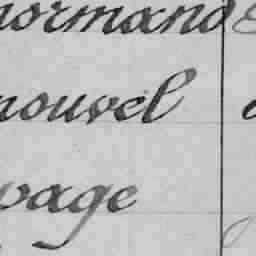 normand
nouvel
vage